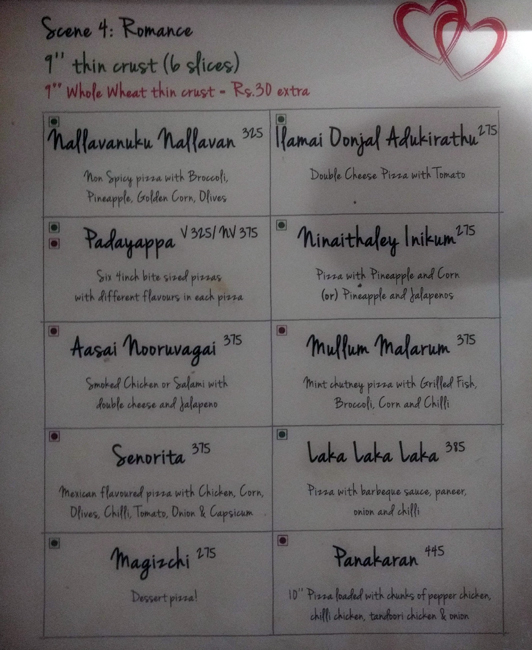 Scene 4: Romance
9" thin crust (6 slices)
9" Whole Wheat thin crust - Rs.30 extra
Nallavanuku Nallavan 325
Non Spicy pizza with Broccoli,
Pineapple, Golden Corn, Olives
Ilamai Oonjal Adukirathu 275
Double Cheese Pizza with Tomato
Padayappa V 325/ NV 375
Six 4inch bite sized pizzas
with different flavours in each pizza
Ninaithaley Inikum 275
Pizza with Pineapple and Corn
(or) Pineapple and Jalapenos
Aasai Nooruvagai 375
Smoked Chicken or Salami with
double cheese and Jalapeno
Mullum Malarum 375
Mint chutney pizza with Grilled Fish,
Broccoli, Corn and Chilli
Senorita 375
Mexican flavoured pizza with Chicken, Corn,
Olives, Chilli, Tomato, Onion & Capsicum
Laka Laka Laka 385
Pizza with barbeque sauce, paneer,
onion and chilli
Magizchi 275
Dessert pizza!
Panakaran 445
10" Pizza loaded with chunks of pepper chicken,
chilli chicken, tandoori chicken & onion